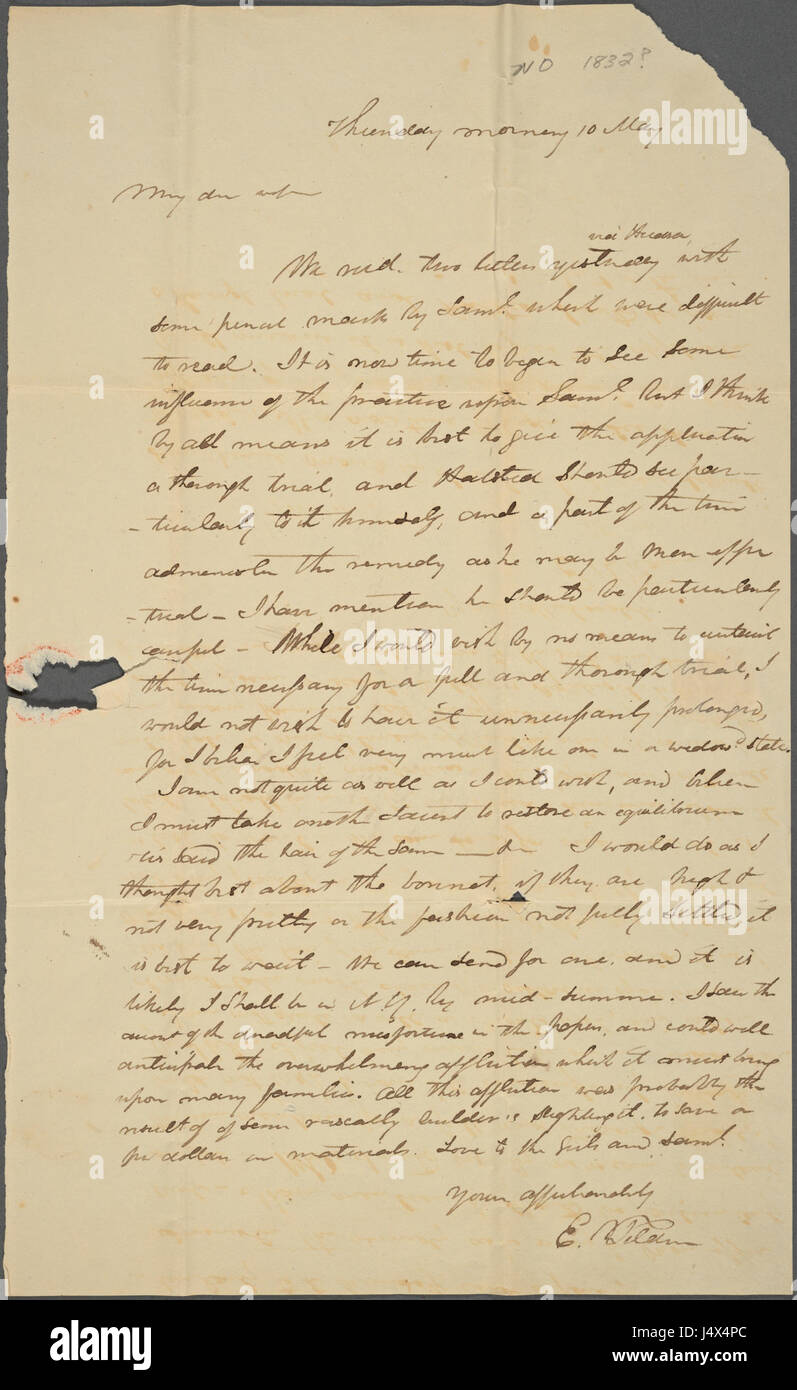 ND 1832?
Thursday morning 10 May
My dear wife
via Hudson
We recd. two letters yesterday with
some pencil marks by Saml. which were difficult
to read. It is now time to begin to see some
influence of the practice upon Saml. but I think
by all means it is best to give the application
a thorough trial, and Halsted should see par-
-ticularly to it himself, and a part of the time
administer the remedy as he may be more effec
-tual - I have mention he should be particularly
careful - While I would wish by no means to curtail
the time necessary for a full and thorough trial, I
would not wish to have it unnecessarily prolonged,
for I believe I feel very much like one in a widowd state.
I am not quite as well as I could wish, and believe
I must take another to restore an equilibrium
tis said the hair of the same I would do as I
thought best about the bonnet, if they are high &
not very pretty or the fashion not fully settled it
is best to wait - We can send for one, and it is
likely I shall be in N.Y. by mid-summer. I saw the
account of the dreadful misfortune in the papers, and could well
anticipate the overwhelming affliction which it must bring
upon many families. All this affliction was probably the
result of of some rascally builder's slighting it, to save a
few dollars in materials. Love to the girls and Saml.
Yours affectionately
E. Tilden
alamy
alamy stock photo
J4X4PC
www.alamy.com